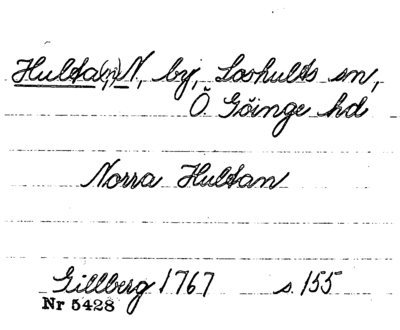 Hulta(n), N, by, Loshults sn,
Ö. Göinge hd
Norra Hultan
Gillberg 1767 s. 155
Nr 5428